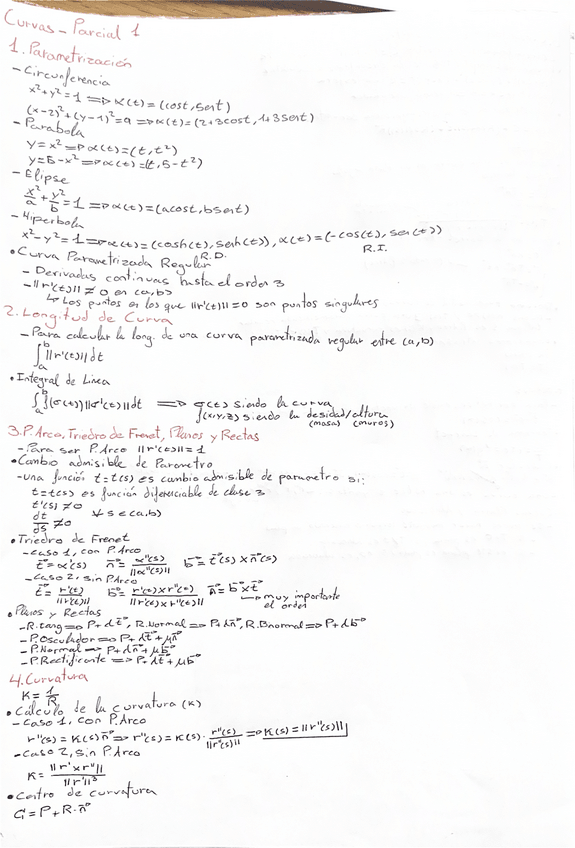 Curvas - Parcial 1
1. Parametrización
- Circunferencia
x²+y²=1 => α(t)=(cost, sent)
(x-2)²+(y-1)²=9 => α(t)=(2+3cost, 1+3sent)
- Parabola
y=x² => α(t)=(t,t²)
y=5-x² => α(t)=(t,5-t²)
- Elipse
x²/a + y²/b = 1 => α(t)=(acost, bsent)
- Hiperbola
x²-y²=1 => α(t)=(cosh(t), senh(t)), α(t)=(-cos(t), sen(t))
R.D. R.I.
• Curva Parametrizada Regular
- Derivadas continuas hasta el orden 3
- ||r'(t)|| ≠ 0 en (a,b)
↳ Los puntos en los que ||r'(t)||=0 son puntos singulares
2. Longitud de Curva
- Para calcular la long. de una curva parametrizada regular entre (a,b)
∫ₐᵇ ||r'(t)|| dt
• Integral de Linea
∫ₐᵇ f(σ(t)) ||σ'(t)|| dt => σ(t) siendo la curva
f(x,y,z) siendo la desidad/altura
(masa) (muros)
3. P. Arco, Triedro de Frenet, Planos y Rectas
- Para ser P. Arco ||r'(t)||=1
• Cambio admisible de Parametro
- una función t=t(s) es cambio admisible de parametro si:
t=t(s) es función diferenciable de clase 3
t'(s) ≠ 0
dt/ds ≠ 0 ∀ s ∈ (a,b)
• Triedro de Frenet
- Caso 1, con P. Arco
t⃗=α'(s) n⃗=α''(s)/||α''(s)|| b⃗=t⃗(s)×n⃗(s)
- Caso 2, sin P. Arco
t⃗=r'(t)/||r'(t)|| b⃗=r'(t)×r''(t)/||r'(t)×r''(t)|| n⃗=b⃗×t⃗
↳ muy importante
el orden
• Planos y Rectas
- R. tang => P+λt⃗, R. Normal => P+λn⃗, R. Bnormal => P+λb⃗
- P. Osculador => P+λt⃗+μn⃗
- P. Normal => P+λn⃗+μb⃗
- P. Rectificante => P+λt⃗+μb⃗
4. Curvatura
K=1/R
• Calculo de la curvatura (K)
- Caso 1, con P. Arco
r''(s)=K(s)n⃗ => r''(s)=K(s)·r''(s)/||r''(s)|| => K(s)=||r''(s)||
- Caso 2, sin P. Arco
K=||r'×r''||/||r'||³
• Centro de curvatura
C=P+R·n⃗